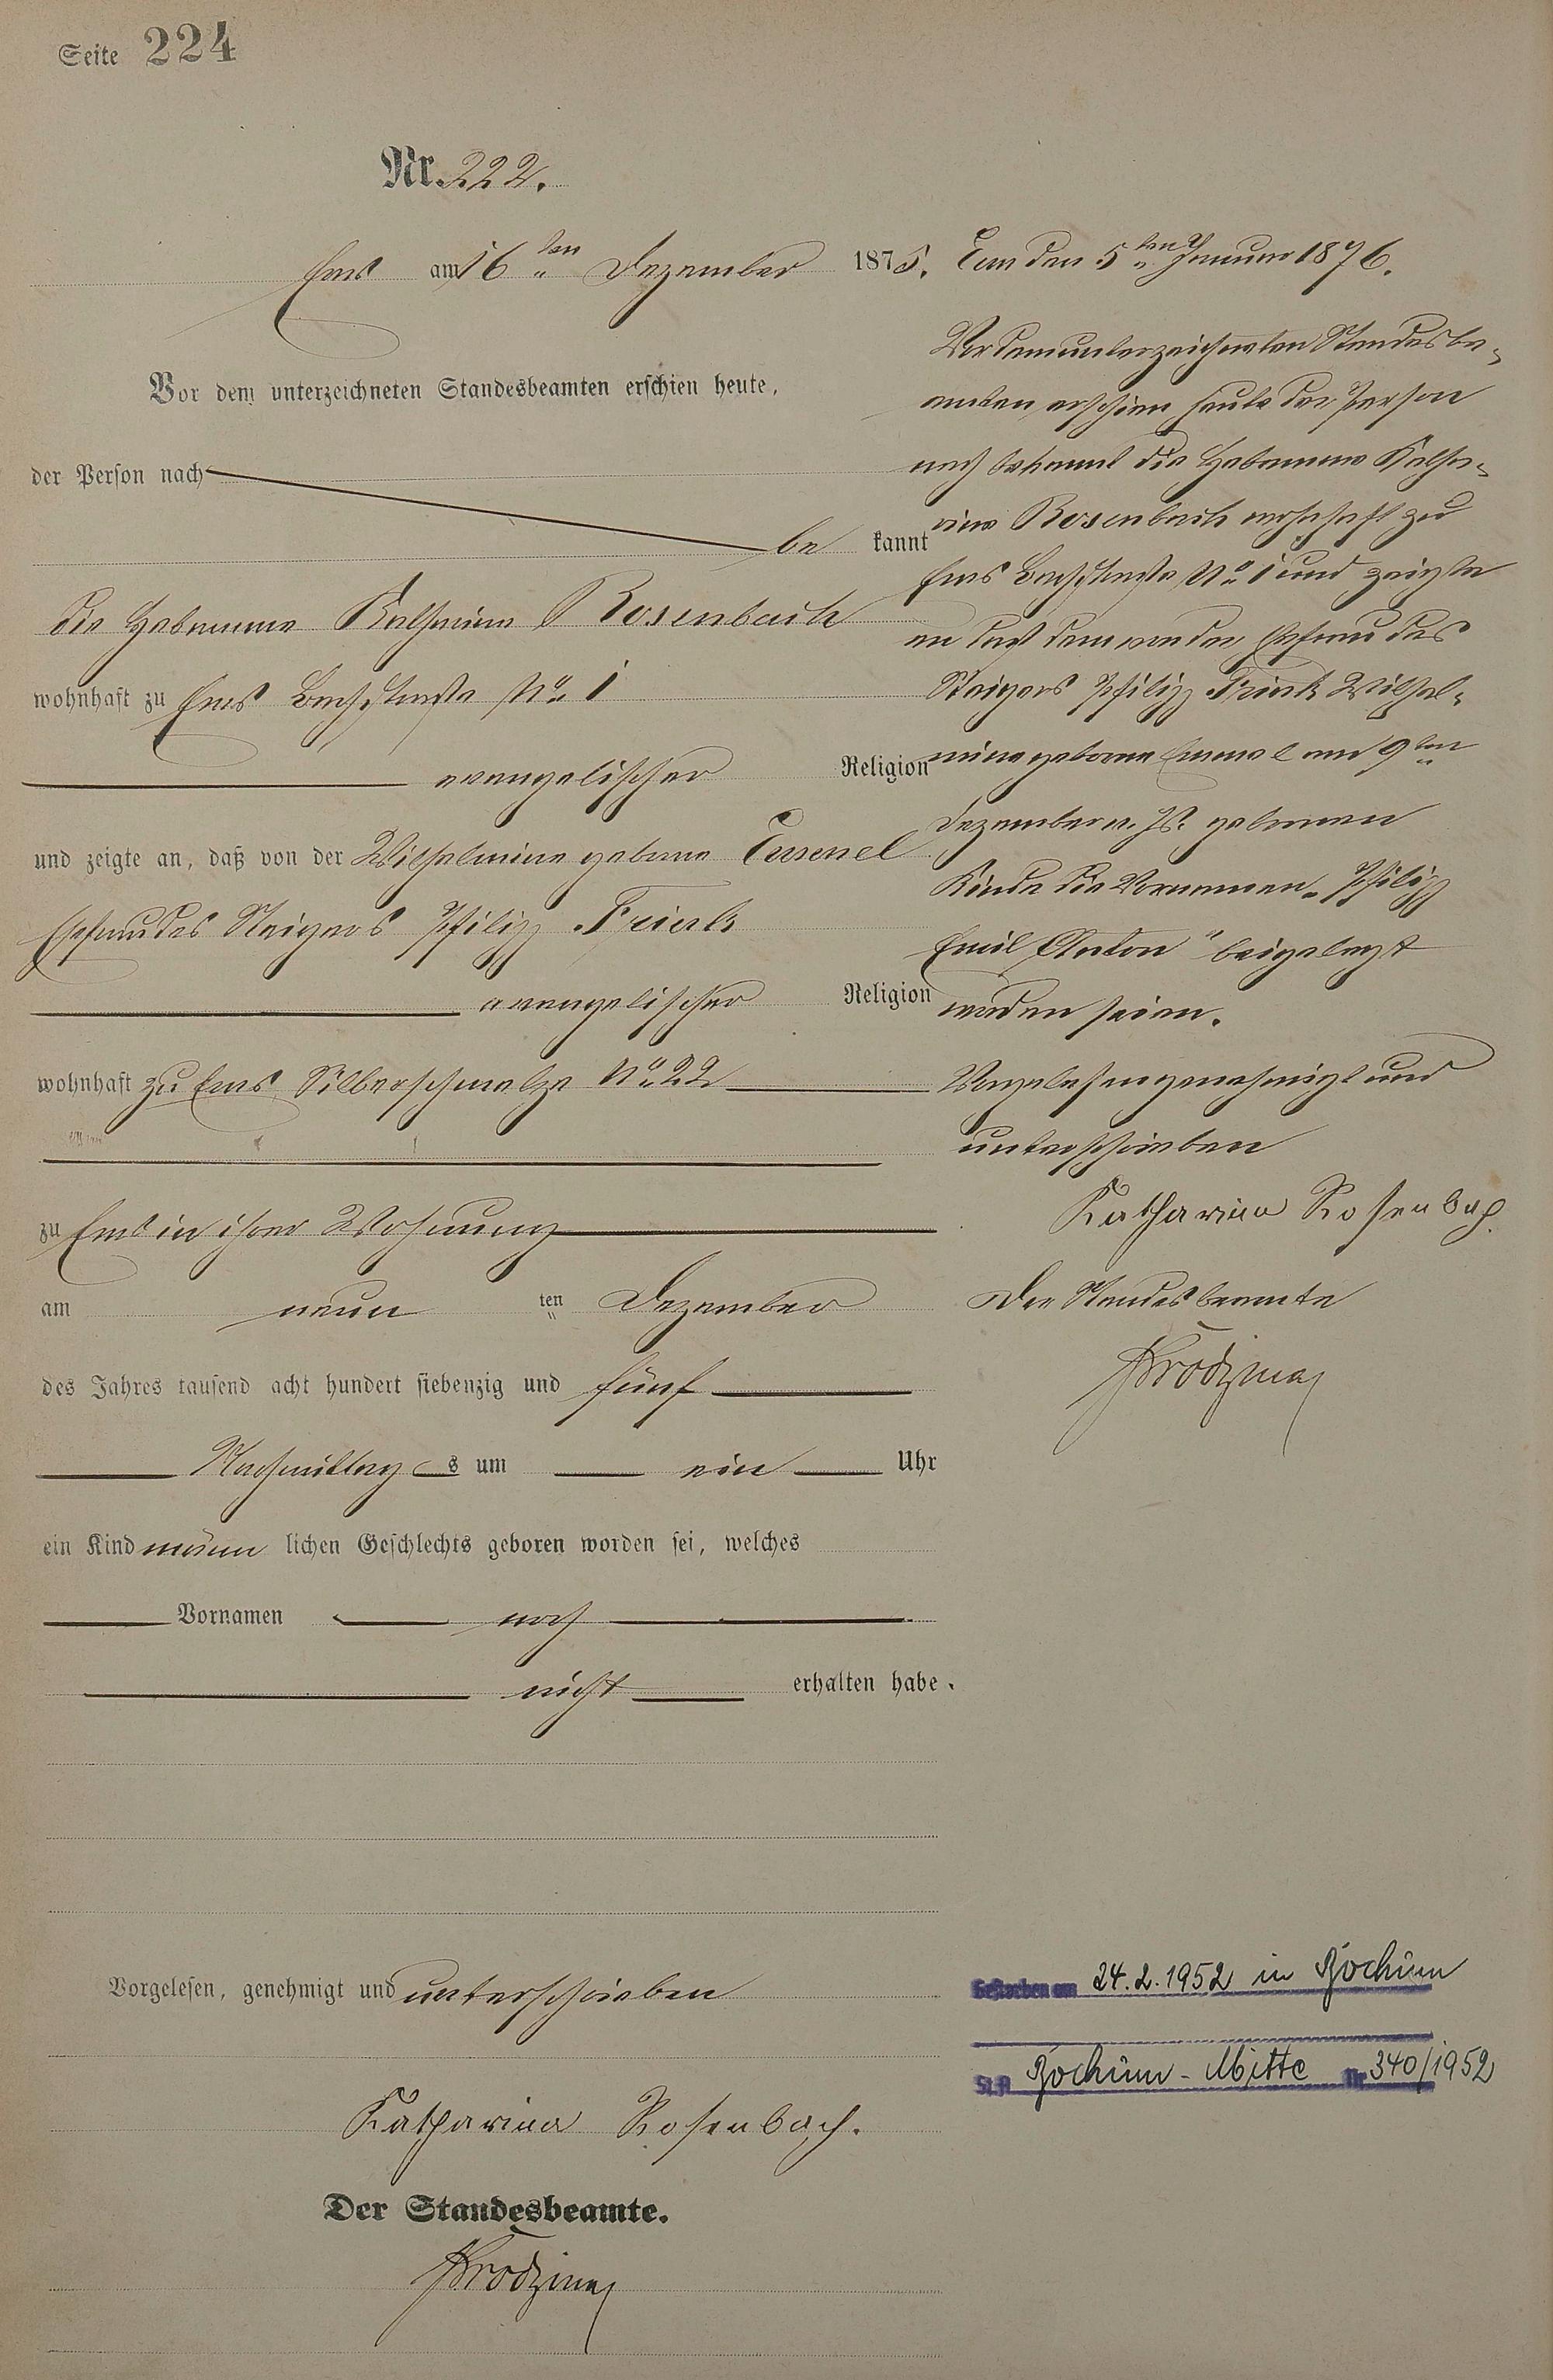 Seite 224
Nr. 222.
Ems am 16ten Dezember 1875.
Vor dem unterzeichneten Standesbeamten erschien heute,
der Person nach
be kannt
die Hebamme Katharina Rosenbach
wohnhaft zu Ems Bachstraße No. 1
evangelischer Religion
und zeigte an, daß von der Wilhelmine geborne Emmel
Ehefrau des Steigers Philipp Frink
evangelischer Religion
wohnhaft zu Ems Silberschmelze No. 22
zu Ems in ihrer Wohnung
am neun ten Dezember
des Jahres tausend acht hundert siebenzig und fünf
Nachmittags um ein Uhr
ein Kind männ lichen Geschlechts geboren worden sei, welches
Vornamen noch
nicht erhalten habe.
Vorgelesen, genehmigt und unterschrieben
Katharina Rosenbach.
Der Standesbeamte.
Ems den 5ten Januar 1876.
Vor dem unterzeichneten Standesbe-
amten erschien heute der Person
nach bekannt die Hebamme Katha-
rina Rosenbach wohnhaft zu
Ems Bachstraße No. 1 und zeigte
an daß dem von der Ehefrau des
Steigers Philipp Frink Wilhel-
mine geborne Emmel am 9ten
Dezember v. Js. geborenen
Kinde die Vornamen „Philipp
Emil Anton" beigelegt
worden seien.
Vorgelesen genehmigt und
unterschrieben
Katharina Rosenbach.
Der Standesbeamte
Gestorben am 24.2.1952 in Bochum
St.A Bochum-Mitte Nr. 340/1952